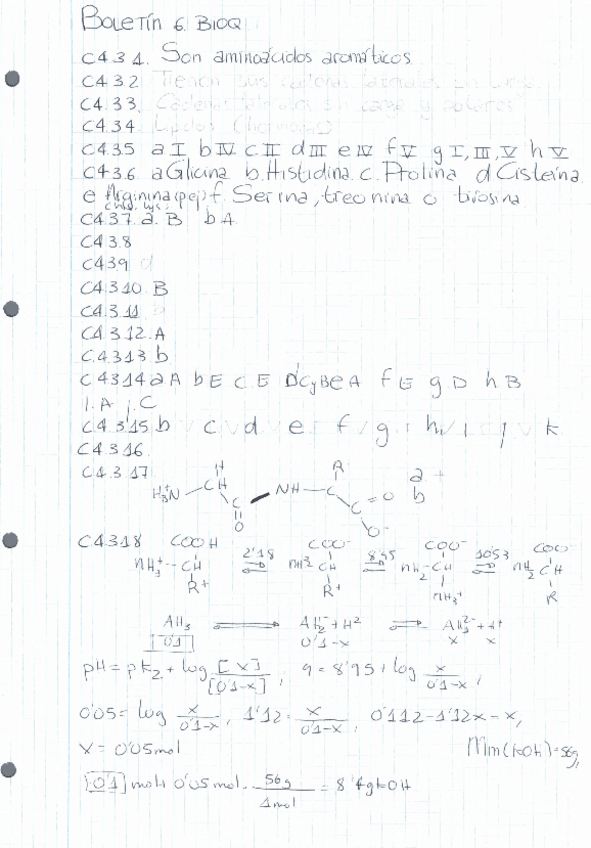 BOLETÍN 6 BIOQ
C4.3.1. Son aminoácidos aromáticos.
C4.3.2 Tienen sus cadenas laterales sin carga.
C4.3.3. Cadenas laterales sin carga y polares
C4.3.4. Lípidos (hormonas)
C4.3.5 a I b IV c II d III e IV f V g I, III, V h V
C4.3.6. a Glicina b. Histidina c. Prolina d Cisteína
e Arginina (pep) f. Serina, treonina o tirosina
C4.3.7. a. B b A
C4.3.8
C4.3.9 d
C4.3.10. B
C4.3.11
C4.3.12. A
C.4.3.13 b
C4.3.14 a A b E c E D C y B e A f E g D h B
i. A j. C
C4.3.15 b c d e f g h i j k
C4.3.16.
C4.3.17
H3+N - CH - C = O - NH - C - C = O
H R O- a + b
C4.3.18 COOH COO- COO- COO-
NH3+ - CH ⇌ 2'18 NH3 CH ⇌ 8'95 NH2 - CH ⇌ 10'53 NH2 CH
R+ R+ NH3+ R
AH3 ⇌ AH2- + H2 ⇌ AH2- + H+
0'1 0'1-x x x
pH = pK2 + log [x] / [0'1-x], 9 = 8'95 + log x / 0'1-x,
0'05 = log x / 0'1-x, 1'12 = x / 0'1-x, 0'112 - 1'12x = x,
x = 0'05 mol Mm(KOH) = 56g,
0'1 mol + 0'05 mol · 56g / 1mol = 8'4g KOH